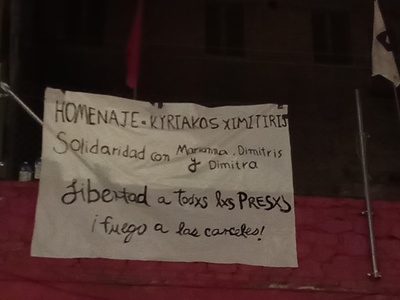 HOMENAJE = KYRIAKOS XIMITIRIS
Solidaridad con Marianna, Dimitris
y Dimitra
Libertad a todxs lxs PRESXS
¡fuego a las carceles!